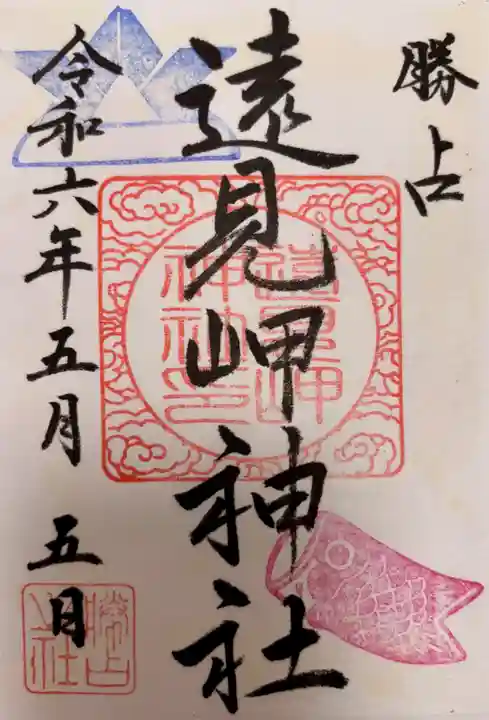 勝占
遠見岬神社
遠見岬
神社印
令和六年五月五日
勝占
社